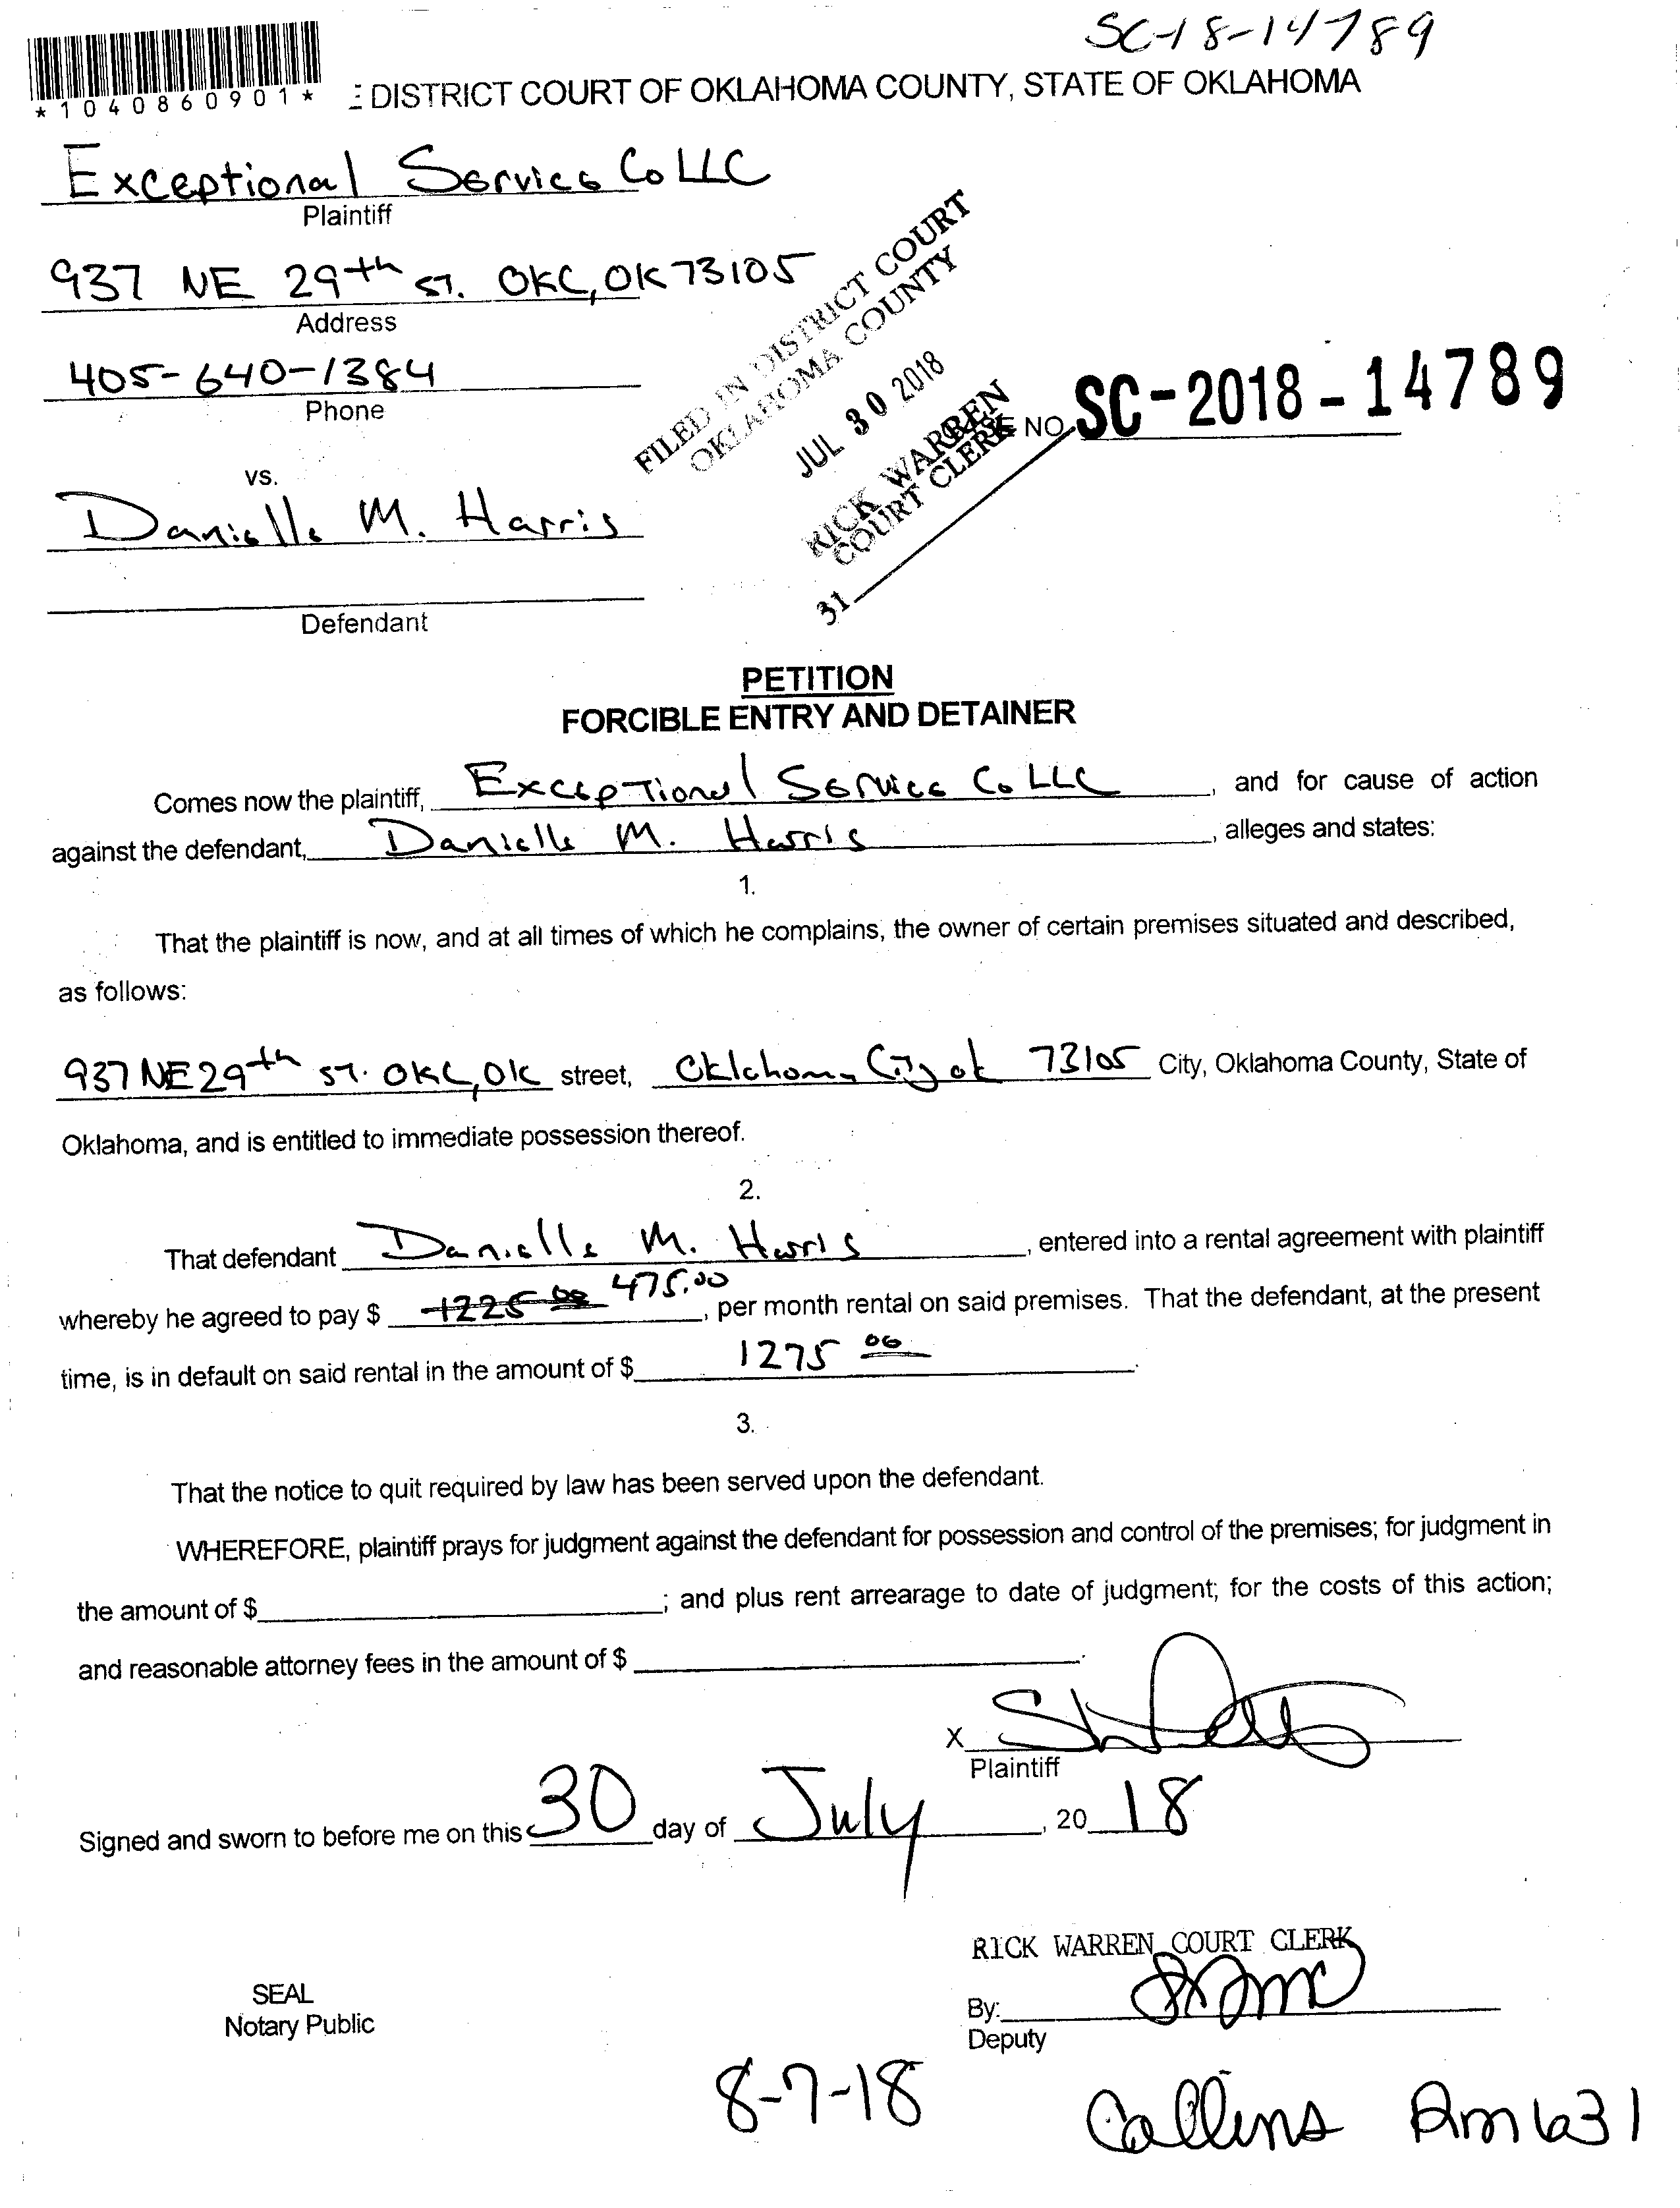 SC-18-14789
*1040860901*
E DISTRICT COURT OF OKLAHOMA COUNTY, STATE OF OKLAHOMA
Exceptional Service Co LLC
Plaintiff
937 NE 29th ST. OKC, OK 73105
Address
405-640-1384
Phone
FILED IN DISTRICT COURT
OKLAHOMA COUNTY
JUL 30 2018
RICK WARREN
COURT CLERK
31
NO. SC-2018-14789
vs.
Danielle M. Harris
Defendant
PETITION
FORCIBLE ENTRY AND DETAINER
Comes now the plaintiff, Exceptional Service Co LLC, and for cause of action
against the defendant, Danielle M. Harris, alleges and states:
1.
That the plaintiff is now, and at all times of which he complains, the owner of certain premises situated and described,
as follows:
937 NE 29th ST. OKC, OK street, Oklahoma City ok 73105 City, Oklahoma County, State of
Oklahoma, and is entitled to immediate possession thereof.
2.
That defendant Danielle M. Harris, entered into a rental agreement with plaintiff
whereby he agreed to pay $ 1225 00 475.00, per month rental on said premises. That the defendant, at the present
time, is in default on said rental in the amount of $ 1275 00.
3.
That the notice to quit required by law has been served upon the defendant.
WHEREFORE, plaintiff prays for judgment against the defendant for possession and control of the premises; for judgment in
the amount of $ ; and plus rent arrearage to date of judgment; for the costs of this action;
and reasonable attorney fees in the amount of $ .
X
Plaintiff
Signed and sworn to before me on this 30 day of July, 20 18
RICK WARREN COURT CLERK
SEAL
Notary Public
By:
Deputy
8-7-18
Collins Rm 631